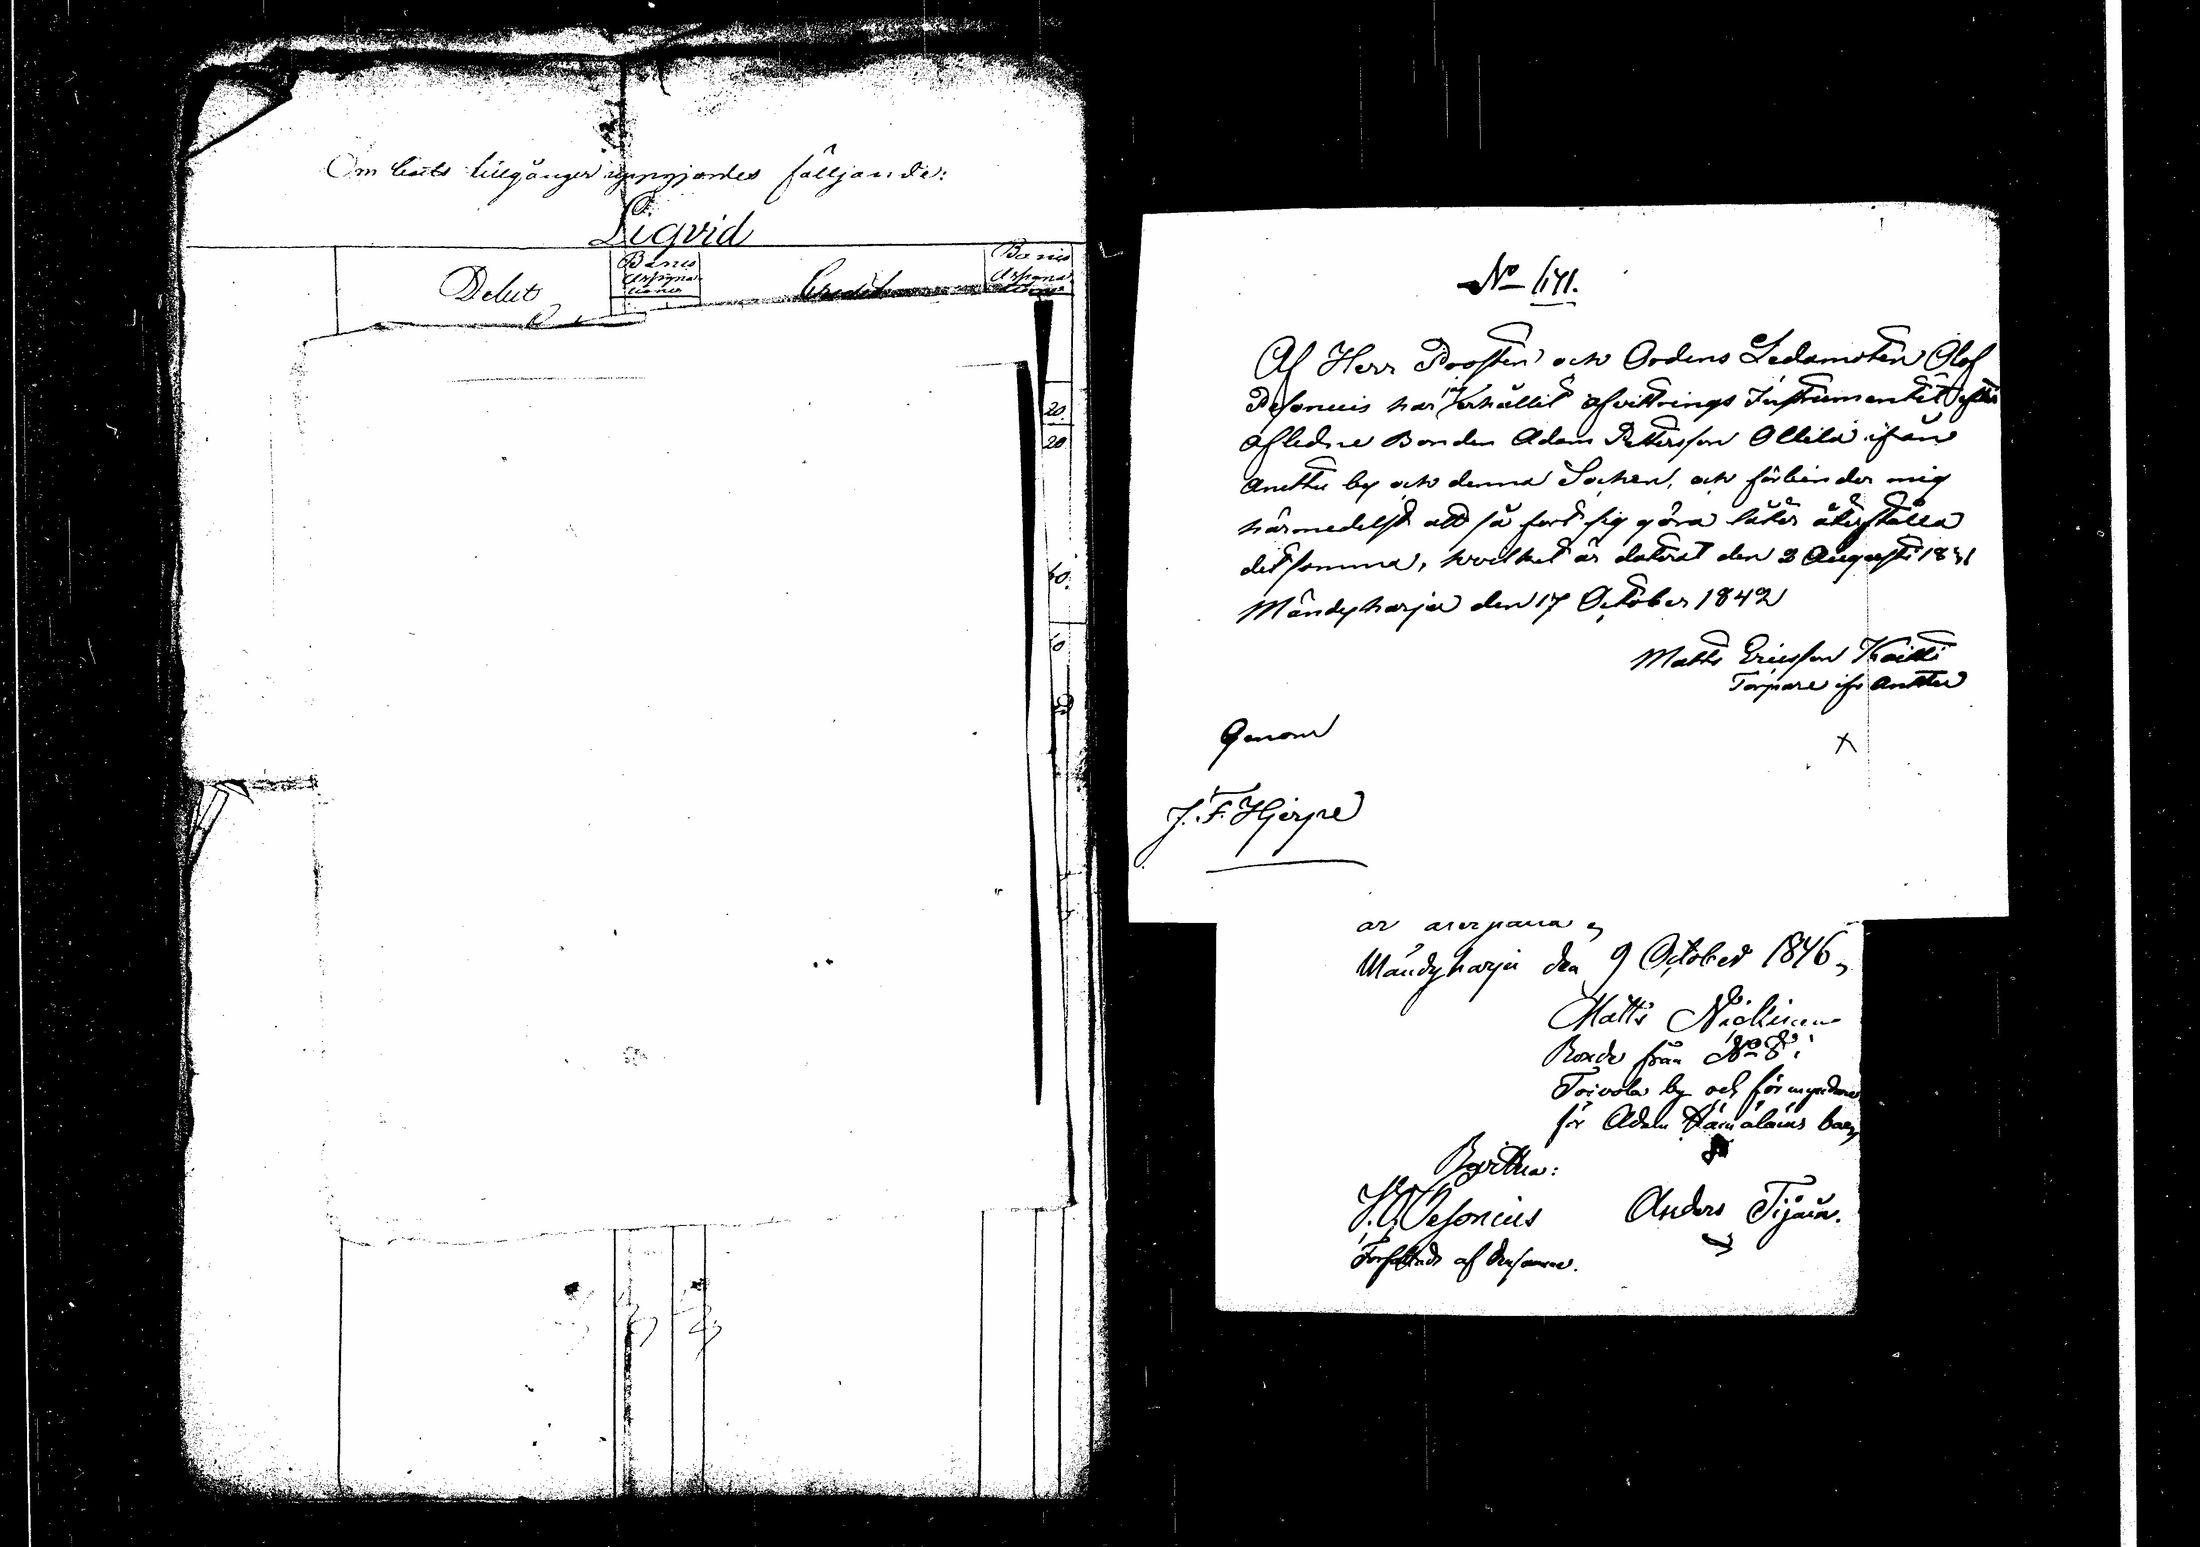 Om boets tillgånger uppgjordes följande:
Liqvid
Debet
Banco Assignationer
Credit
Banco Assignationer
20
20
40.
No 171.
Af Herr Prosten och Ordens Ledamoten Olof
Pesonius har jag erhållit afvittrings Instrumentet efter
aflidne Bonden Adam Pettersson Ollila ifrån
Anttu by och denna Sochen, och förbinder mig
härmedelst att så fort sig göra låter återställa
det samma, hvilket är daterat den 3 Augusti 1831
Mändyharju den 17 October 1842
Matts Ericsson Kaitti
Torpare ifr Anttu
X
Genom
J. F. Hjerpe
Mändyharju den 9 October 1846,
Matts Nickinen
Bonde från No 8 i
Toivola by och förmyndare
för Adam Hämäläins barn
Bevittna:
Pesonius Anders Tijain.
Författadt af densamme.